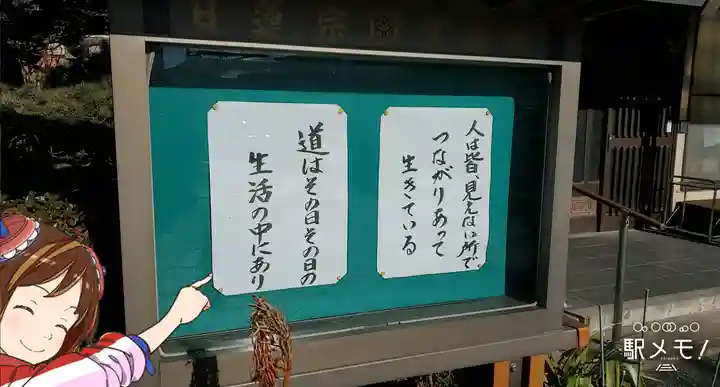 日蓮宗
人は皆、見えない所で
つながりあって
生きている
道はその日その日の
生活の中にあり
駅メモ!